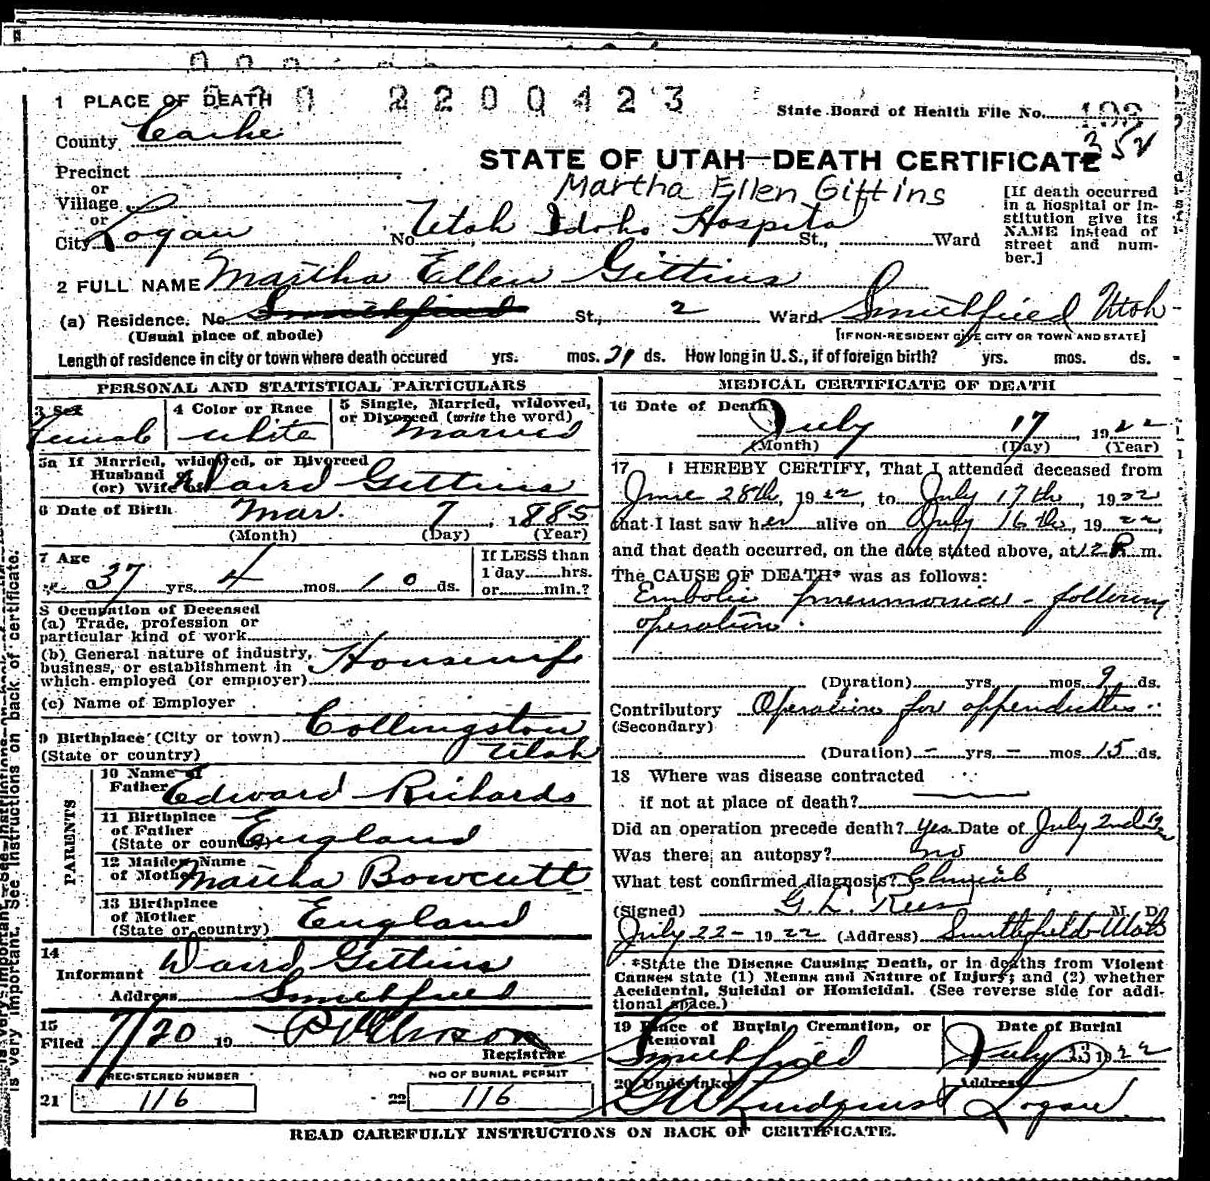 2200423
1 PLACE OF DEATH
State Board of Health File No.
County Cache
352
Precinct
STATE OF UTAH—DEATH CERTIFICATE
or
Martha Ellen Gittins
Village
[If death occurred in a hospital or institution give its NAME instead of street and number.]
or
City Logan No. Utah Idaho Hospital St., Ward
2 FULL NAME Martha Ellen Gittins
(a) Residence. No. Smithfield St., 2 Ward. Smithfield Utah
(Usual place of abode) [IF NON-RESIDENT GIVE CITY OR TOWN AND STATE]
Length of residence in city or town where death occured yrs. mos. 21 ds. How long in U.S., if of foreign birth? yrs. mos. ds.
PERSONAL AND STATISTICAL PARTICULARS
3 Sex 4 Color or Race 5 Single, Married, widowed,
or Divorced (write the word)
Female white married
5a If Married, widowed, or Divorced
Husband
(or) Wife of David Gittins
6 Date of Birth Mar. 7, 1885
(Month) (Day) (Year)
7 Age If LESS than
37 yrs. 4 mos. 10 ds. 1 day hrs.
or min.?
8 Occupation of Deceased
(a) Trade, profession or
particular kind of work
(b) General nature of industry,
business, or establishment in Housewife
which employed (or employer)
(c) Name of Employer
9 Birthplace (City or town) Collingston
(State or country) Utah
PARENTS
10 Name of
Father Edward Richards
11 Birthplace
of Father England
(State or country)
12 Maiden Name
of Mother Martha Bowcutt
13 Birthplace
of Mother England
(State or country)
14
Informant David Gittins
Address Smithfield
15
Filed 7/20 19
Registrar
REGISTERED NUMBER NO OF BURIAL PERMIT
21 116 22 116
MEDICAL CERTIFICATE OF DEATH
16 Date of Death
July 17, 1922
(Month) (Day) (Year)
17 I HEREBY CERTIFY, That I attended deceased from
June 28th, 1922, to July 17th, 1922
that I last saw her alive on July 16th, 1922,
and that death occurred, on the date stated above, at 12 P. m.
The CAUSE OF DEATH* was as follows:
Embolic pneumonia - following
operation.
(Duration) yrs. mos. 9 ds.
Contributory Operation for appendicitis.
(Secondary)
(Duration) - yrs. - mos. 15 ds.
18 Where was disease contracted
if not at place of death?
Did an operation precede death? Yes Date of July 2nd 1922
Was there an autopsy? no
What test confirmed diagnosis? Clinical
(Signed) G. L. Rees M. D.
July 22 - 1922 (Address) Smithfield Utah
*State the Disease Causing Death, or in deaths from Violent
Causes state (1) Means and Nature of Injury; and (2) whether
Accidental, Suicidal or Homicidal. (See reverse side for addi-
tional space.)
19 Place of Burial Cremation, or Date of Burial
Removal
Smithfield July 1922
20 Undertaker Address
G W Lundquist Logan.
READ CAREFULLY INSTRUCTIONS ON BACK OF CERTIFICATE.
is very important. See instructions on back of certificate.